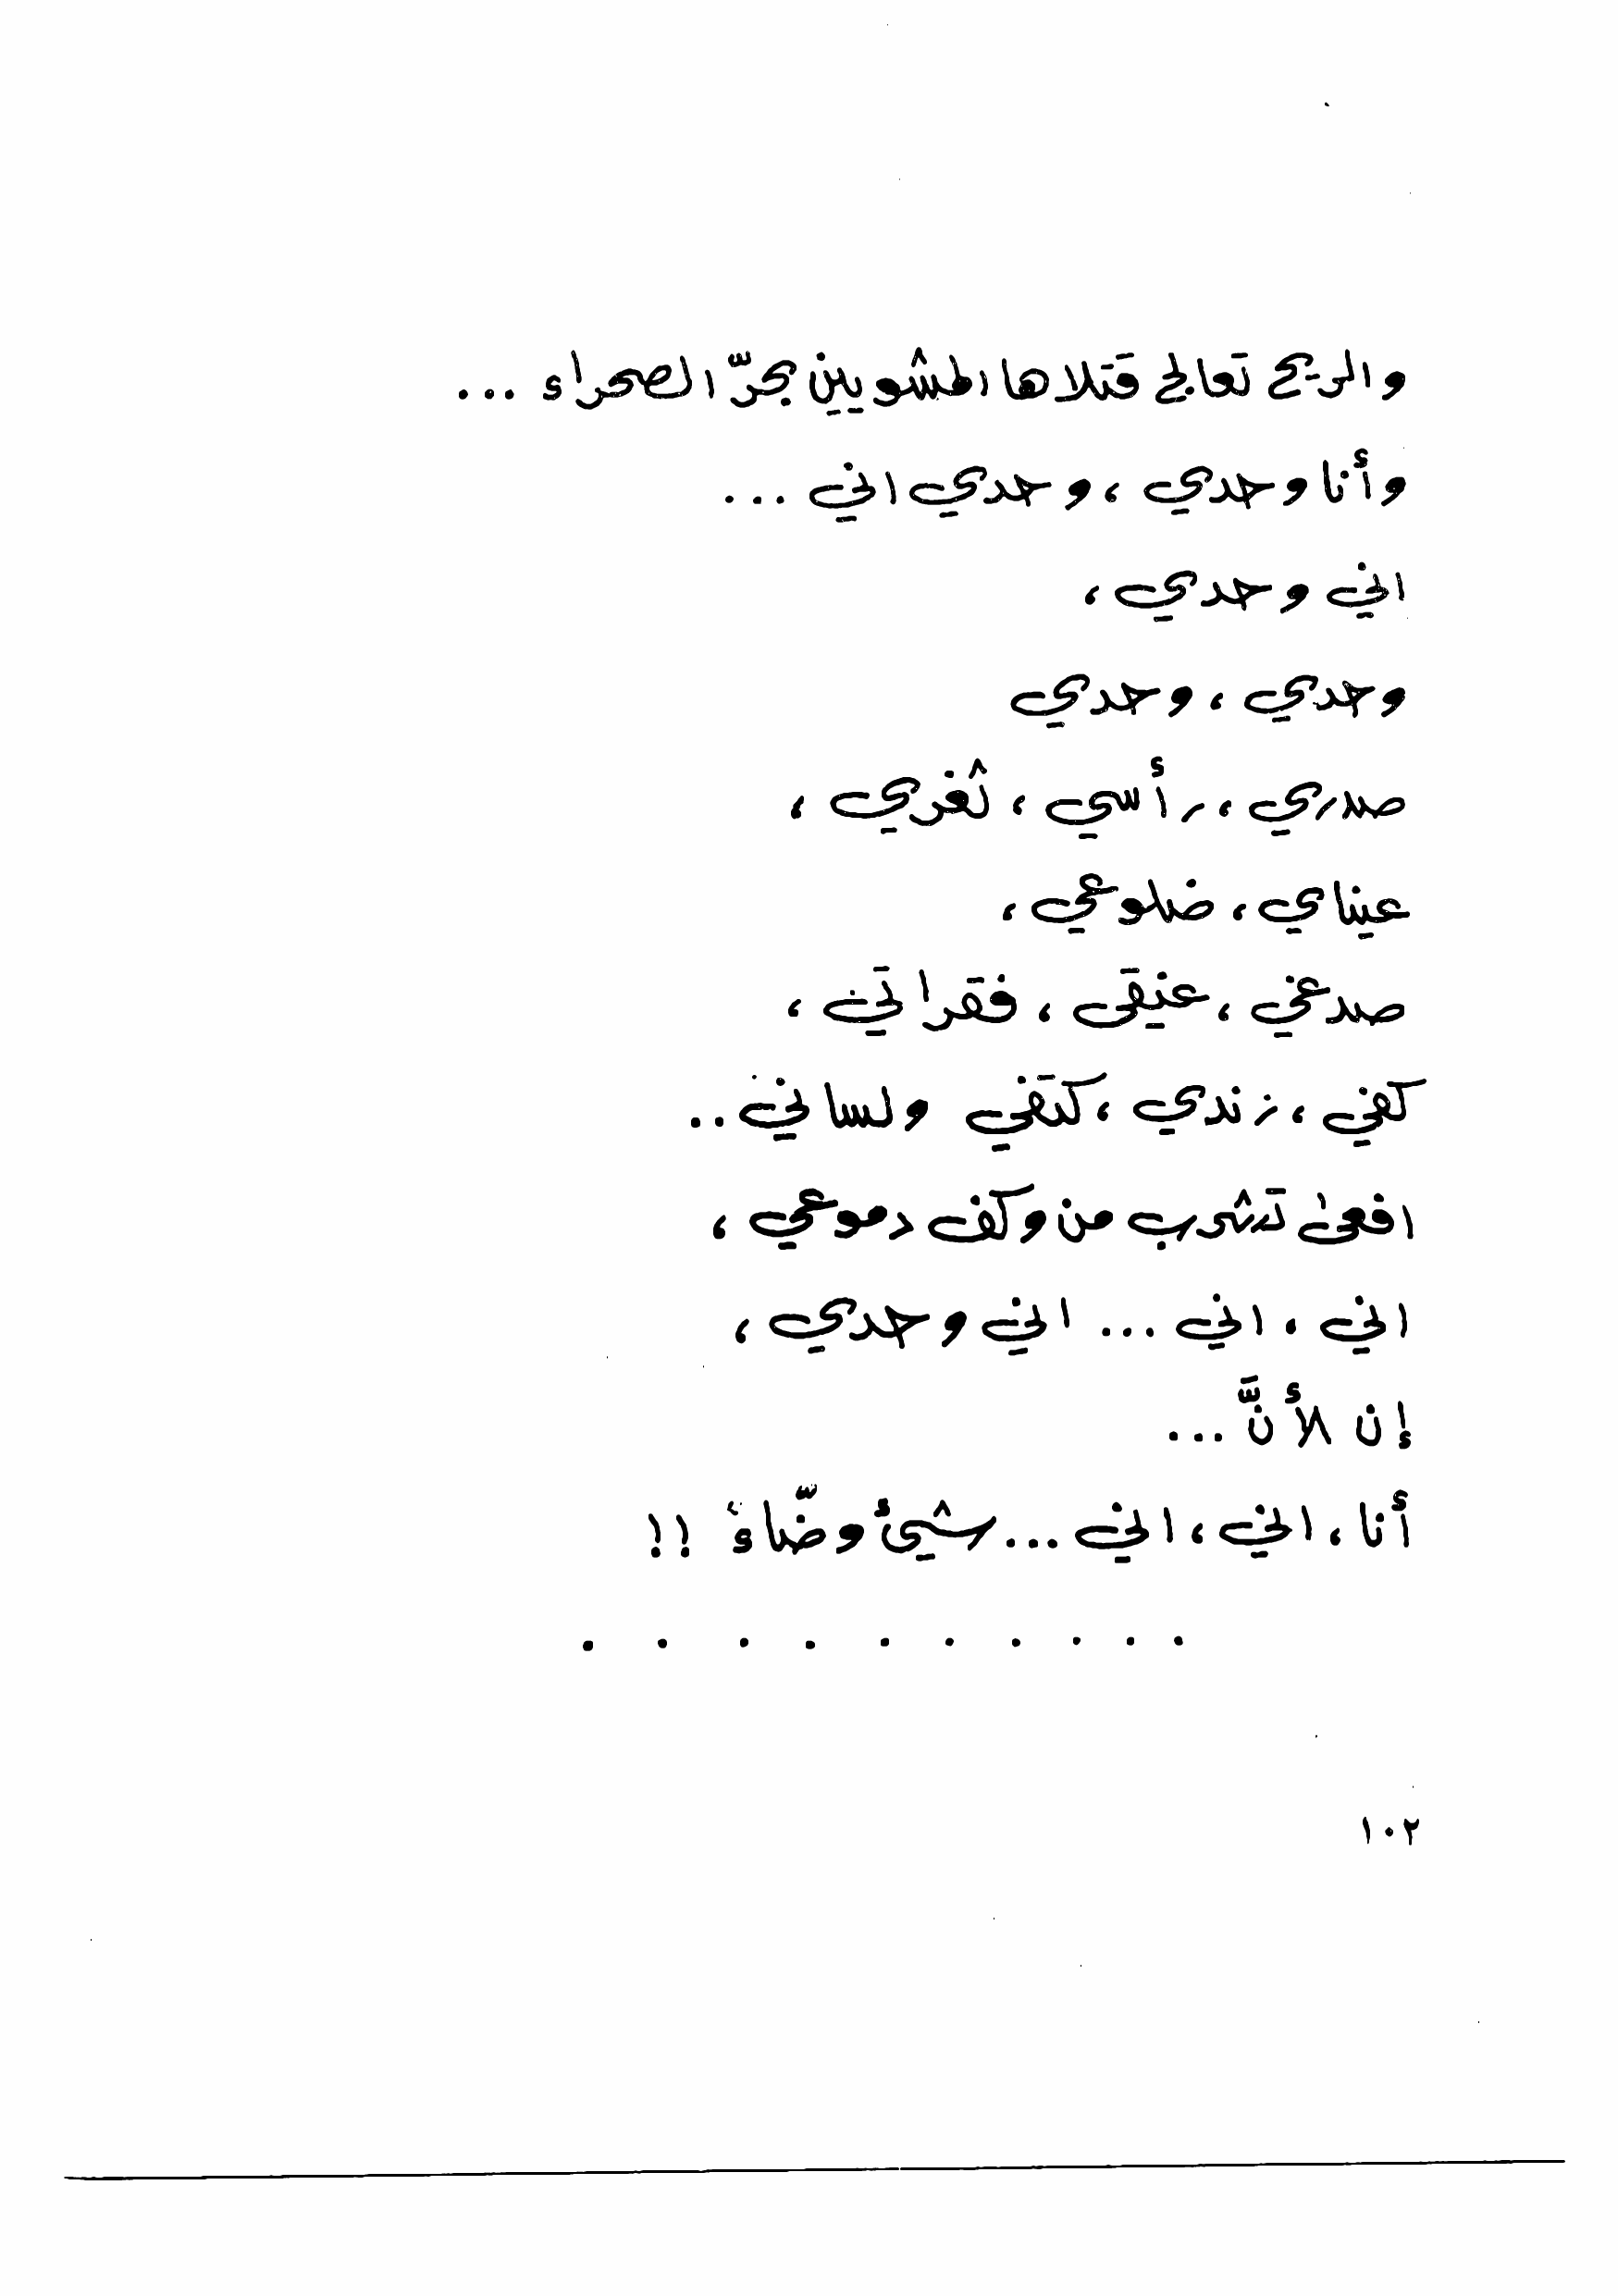 والريح تعالج قتلاها المشويين بحرّ الصحراء ...
وأنا وحدي ، وحدي اني ...
اني وحدي ،
وحدي ، وحدي
صدري ، رأسي ، ثغري ،
عيناي ، ضلوعي ،
صدغي ، عنقي ، فقراتي ،
كفي ، زندي ، كتفي ولساني ..
افعىٰ تشرب من وكف دموعي ،
اني ، اني ... اني وحدي ،
إن لأنَّ ...
أنا ، اني ، اني ... شيئ وضّاء !!
. . . . . . . . . .
١٠٢